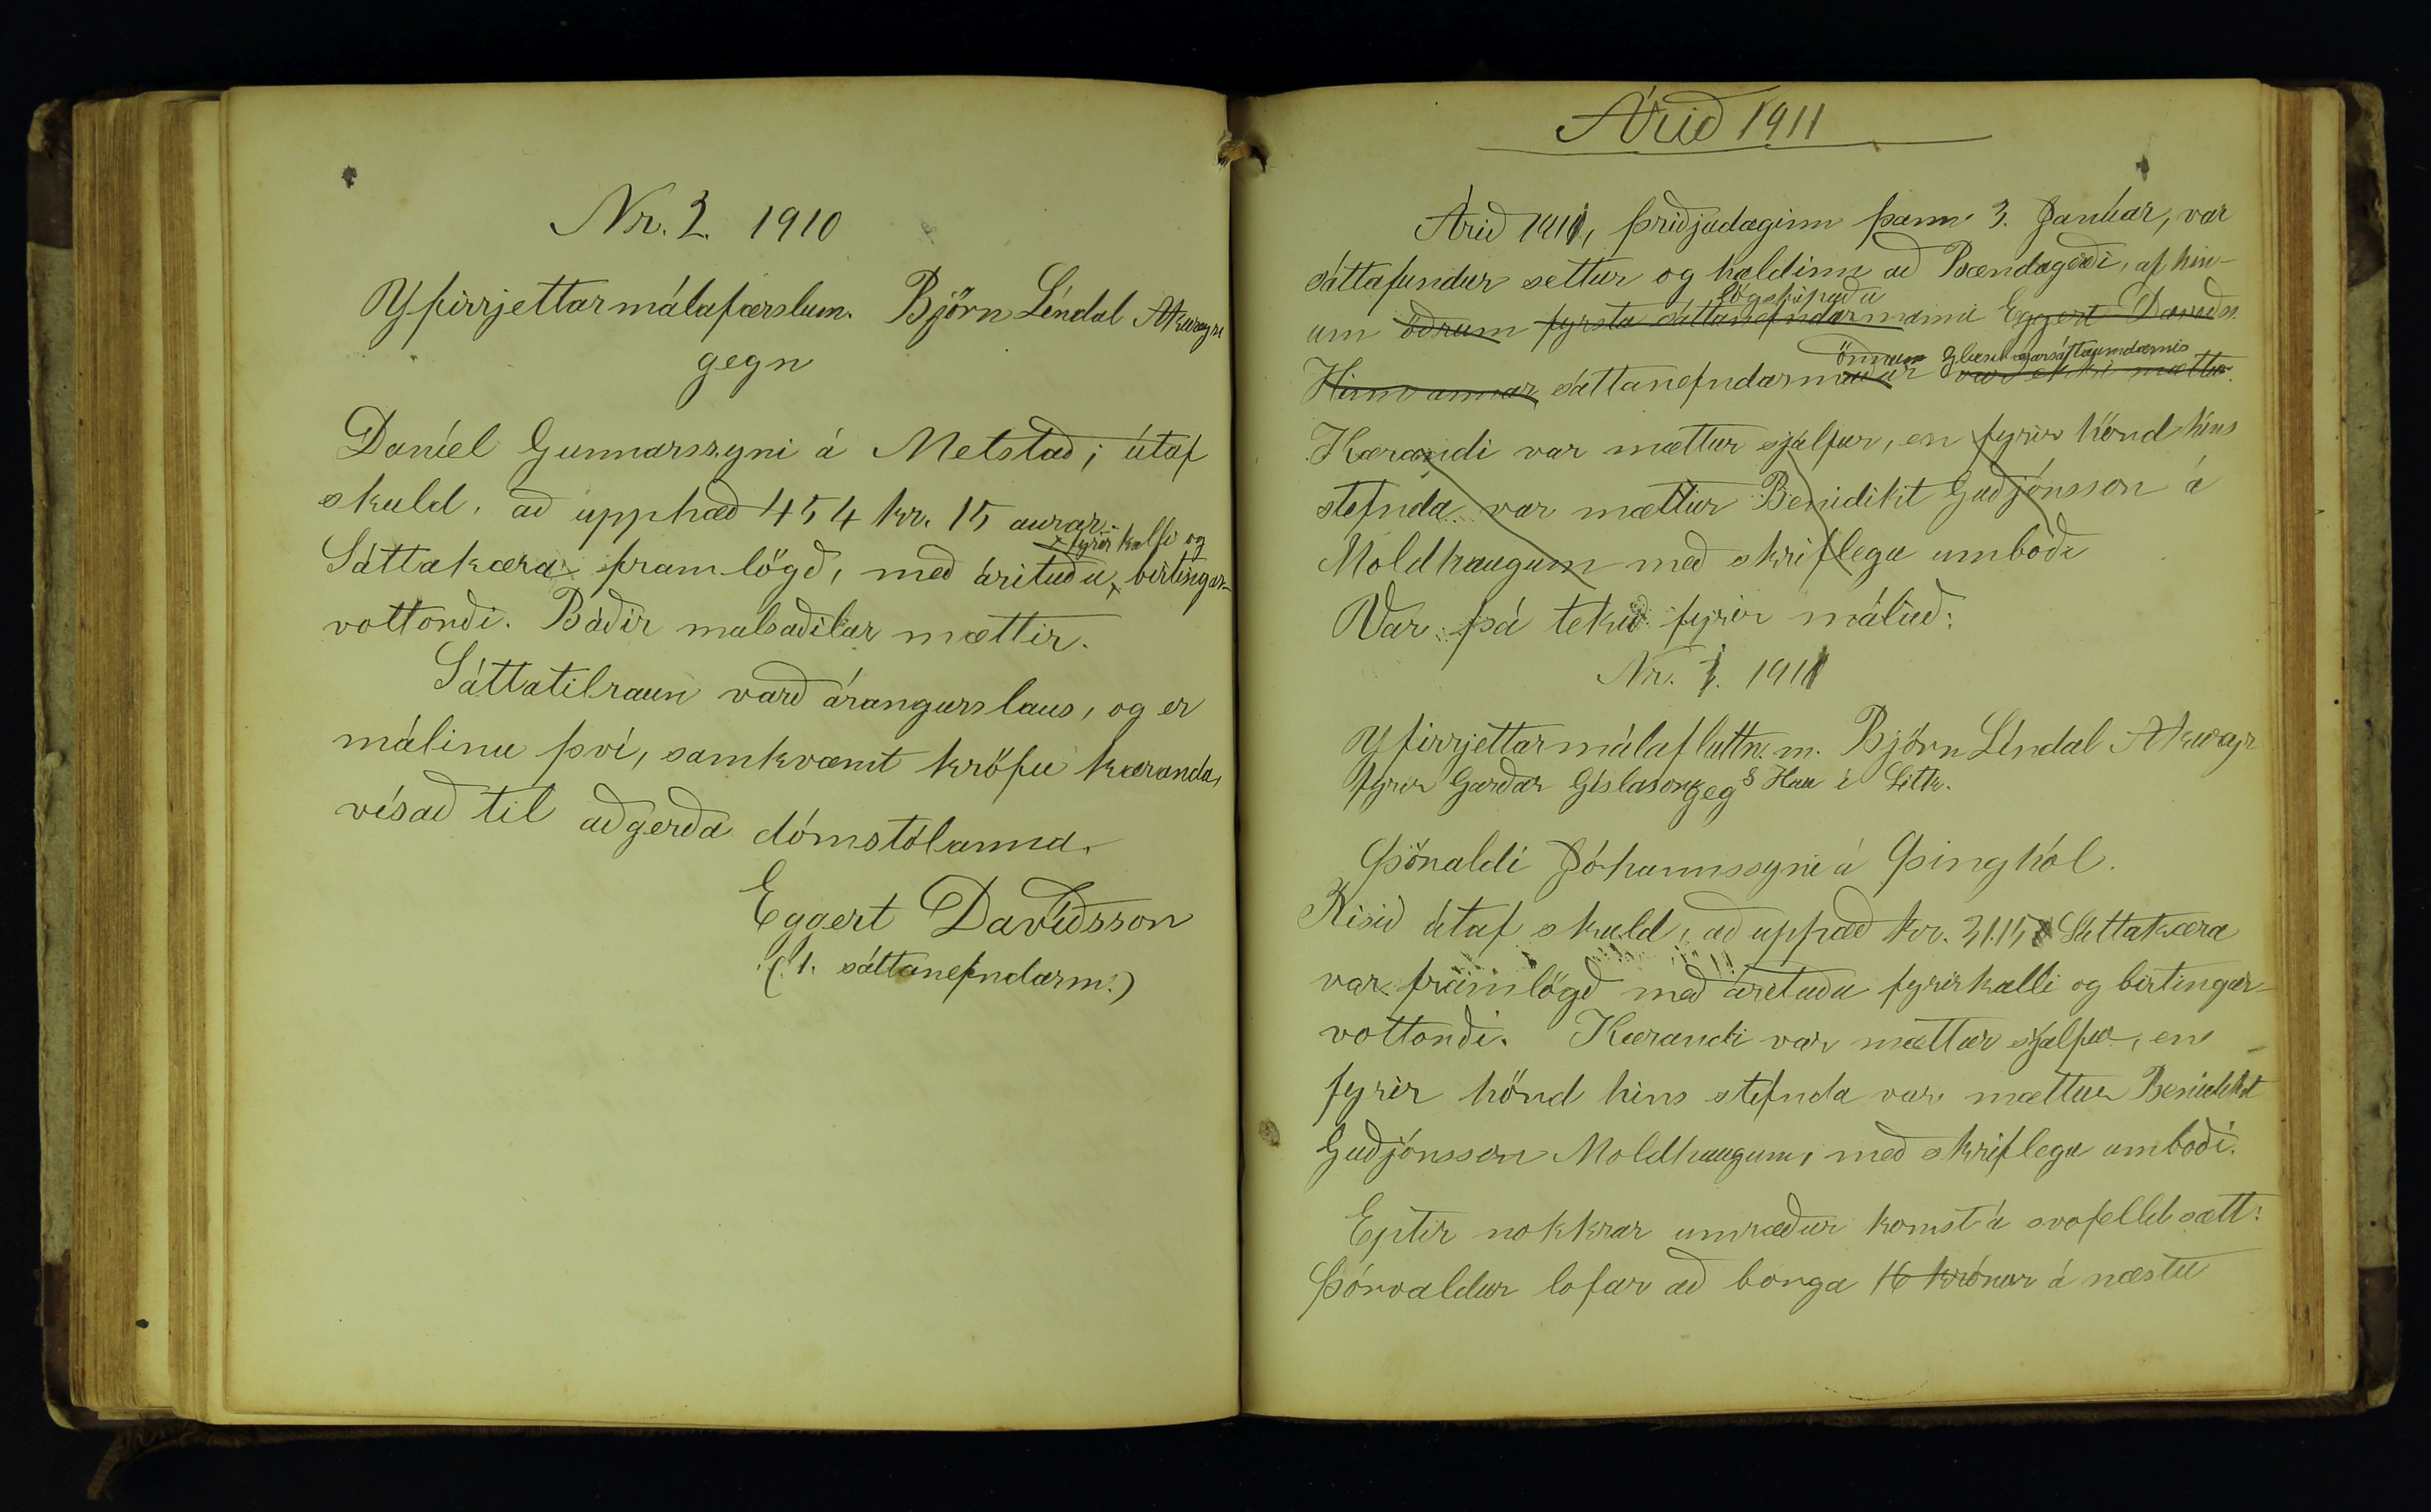 Nr. 2. 1910
Yfirrjettarmálafærslum. Björn Líndal Akureyri
gegn
Daníel Gunnarssyni á Melstað; útaf
skuld, að upphæð 454 kr. 15 aurar.
fyrirkalli og
Sáttakæra framlögð, með árituðu birtingar-
vottorði. Báðir malsaðilar mættir.
Sáttatilraun varð árangurslaus, og er
málinu því, samkvæmt kröfu kæranda,
vísað til aðgerða dómstólanna.
Eggert Davíðsson
(1. sáttanefndarm.)
Árið 1911
Árið 1911, þriðjudaginn þann 3. Janúar, var
sáttafundur settur og haldinn að Bændagerði, af hin-
lögskipuðu
um öðrum fyrsta sáttanefndarmanni Eggert Davíðss.
önnum Glæsibæjarsáttaumdæmis
Hinn annar sáttanefndarmaður varð ekki mættur.
Kærandi var mættur sjálfur, en fyrir hönd hins
stefnda var mættur Benidikt Guðjónsson á
Moldhaugum með skriflegu umboði
Var þá tekið fyrir málið:
Nr. 1. 1911
Yfirrjettarmálafluttn.m. Björn Líndal Akureyri
fyrir Garðar Gíslason geg
Þórvaldi Jóhannssyni á Þinghól.
Risið útaf skuld, að upphæð kr. 31.15 Sáttakæra
var framlögð með árituðu fyrirkalli og birtingar-
vottorði. Kærandi var mættur sjálfur, en
fyrir hönd hins stefnda var mættur Benidikt
Guðjónsson Moldhaugum, með skriflegu umboði.
Eptir nokkrar umræður komst á svofelld sætt:
Þórvaldur lofar að borga 16 krónur á næstu